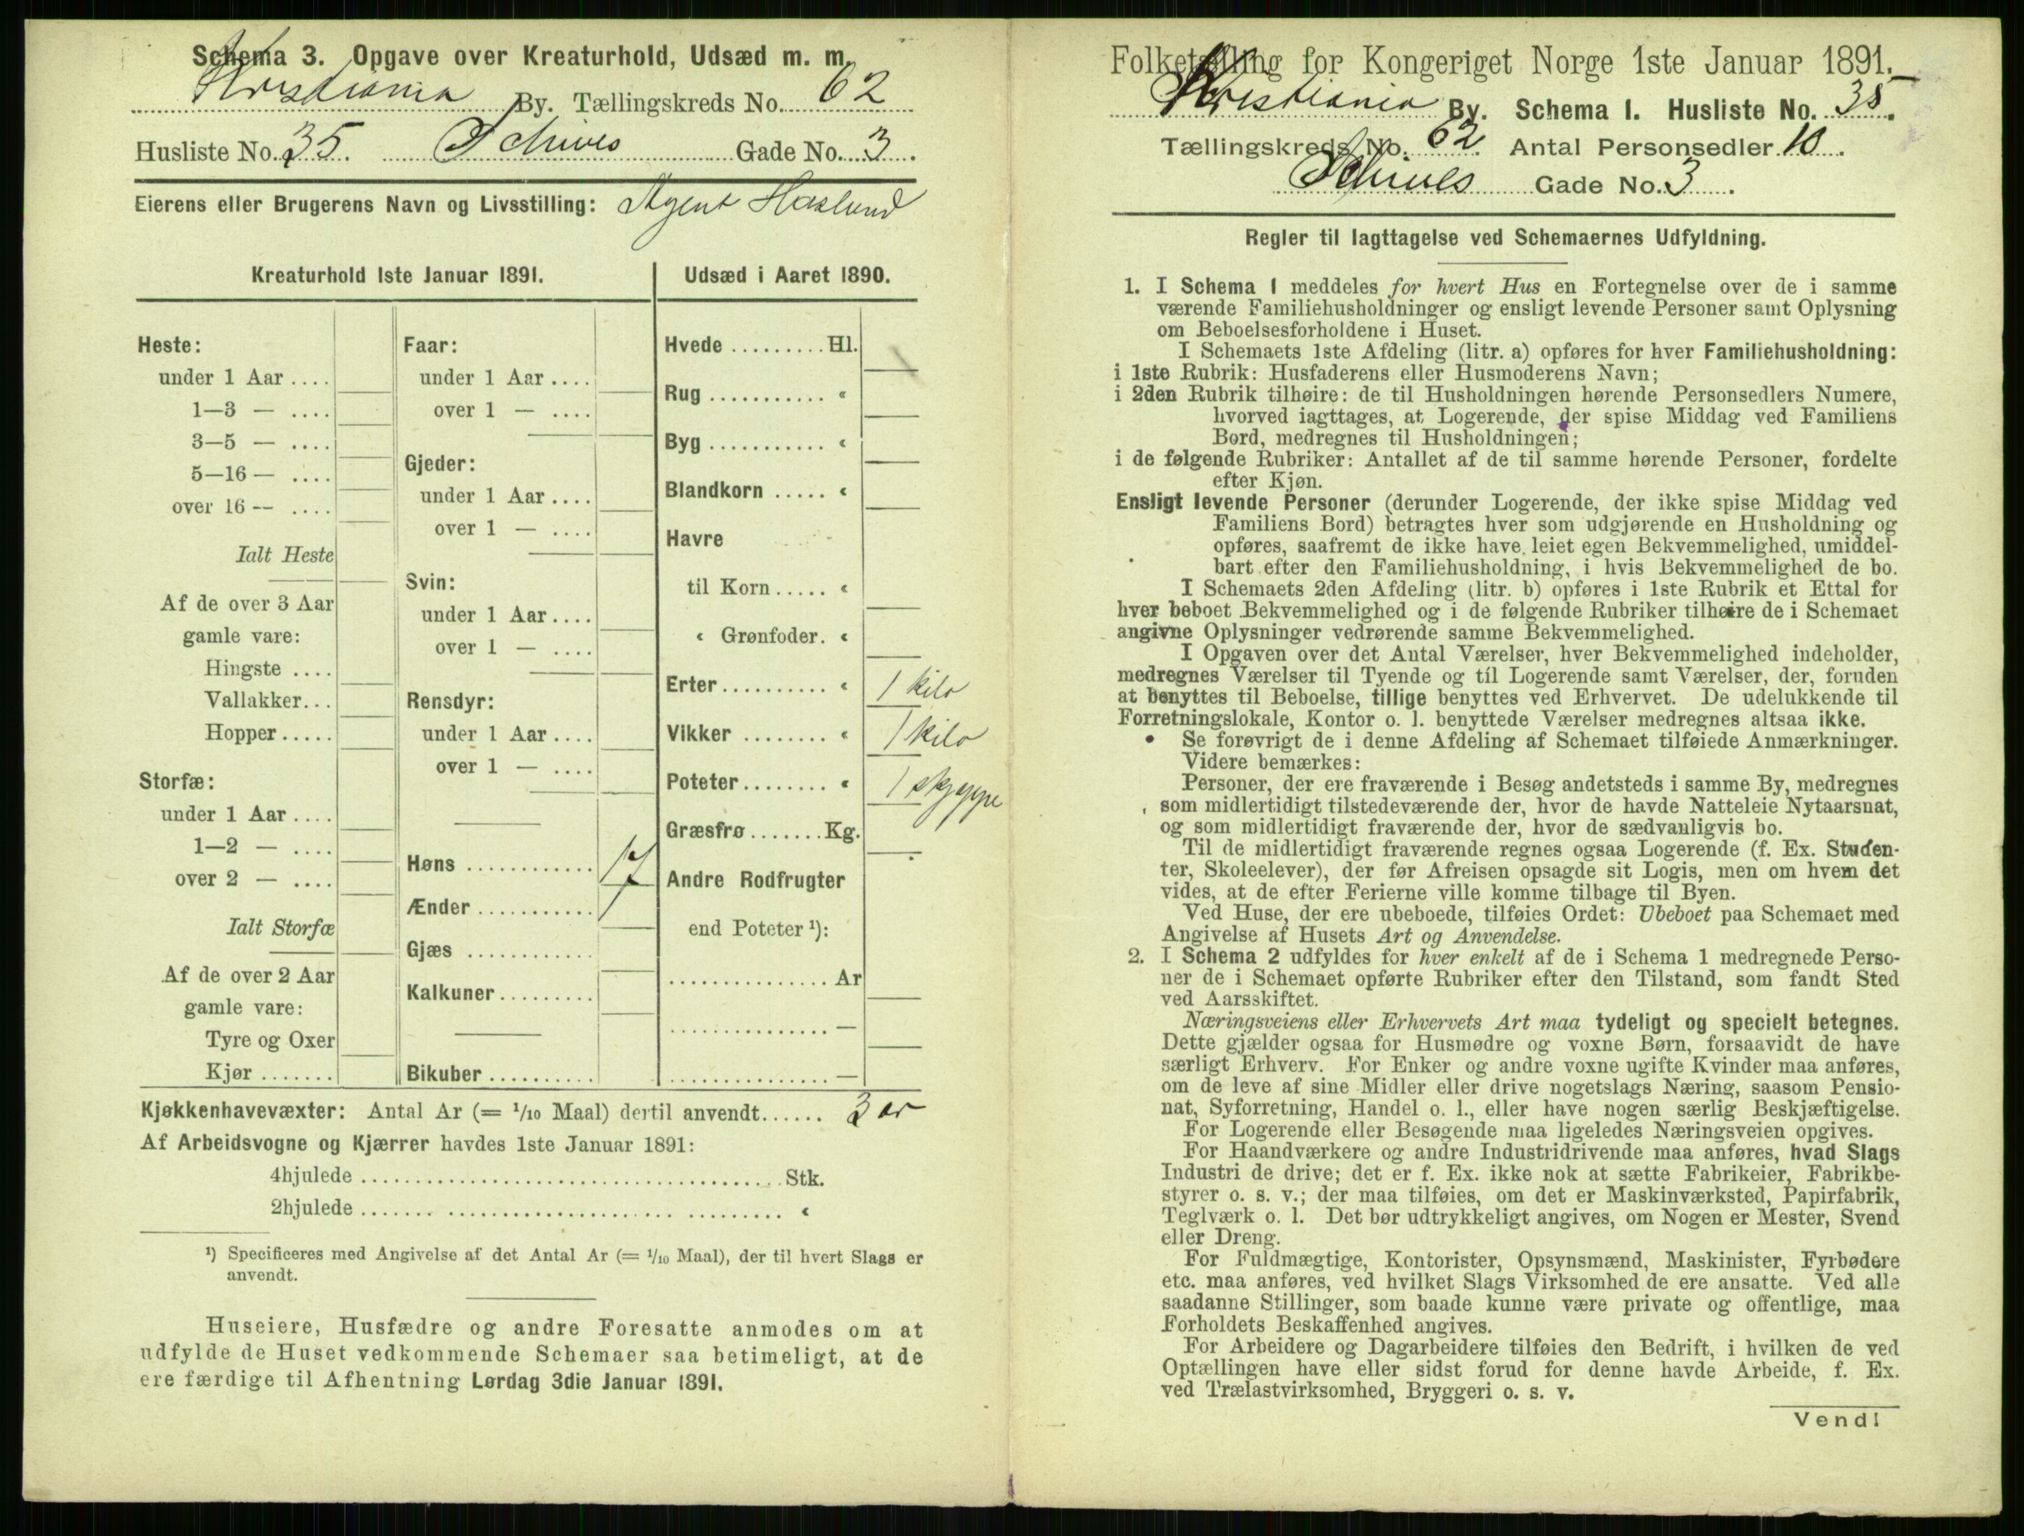 Schema 3. Opgave over Kreaturhold, Udsæd m. m.
Kristiania By. Tællingskreds No. 62
Husliste No. 35. Schives Gade No. 3.
Eierens eller Brugerens Navn og Livsstilling: Agent Haslund
Kreaturhold 1ste Januar 1891.
Heste:
under 1 Aar ....
1—3 — ....
3—5 — ....
5—16 — ....
over 16 — ....
Ialt Heste
Af de over 3 Aar
gamle vare:
Hingste ....
Vallakker...
Hopper.....
Storfæ:
under 1 Aar ....
1—2 — ....
over 2 — ....
Ialt Storfæ
Af de over 2 Aar
gamle vare:
Tyre og Oxer
Kjør .......
Faar:
under 1 Aar ....
over 1 — ....
Gjeder:
under 1 Aar ....
over 1 — ....
Svin:
under 1 Aar ....
over 1 — ....
Rensdyr:
under 1 Aar ....
over 1 — ....
Høns ........... 17
Ænder ...........
Gjæs ...........
Kalkuner.........
Bikuber ..........
Udsæd i Aaret 1890.
Hvede ......... Hl.
Rug ........... «
Byg ........... «
Blandkorn ..... «
Havre
til Korn..... «
« Grønfoder. «
Erter.......... « 1 kilo
Vikker ........ « 1 kilo
Poteter........ « 1 skjæppe
Græsfrø ....... Kg.
Andre Rodfrugter
end Poteter ¹):
............... Ar
............... —
............... —
Kjøkkenhavevæxter: Antal Ar (= 1/10 Maal) dertil anvendt...... 3 ar
Af Arbeidsvogne og Kjærrer havdes 1ste Januar 1891:
4hjulede ..................................... Stk.
2hjulede ..................................... «
¹) Specificeres med Angivelse af det Antal Ar (= 1/10 Maal), der til hvert Slags er
anvendt.
Huseiere, Husfædre og andre Foresatte anmodes om at
udfylde de Huset vedkommende Schemaer saa betimeligt, at de
ere færdige til Afhentning Lørdag 3die Januar 1891.
Folketælling for Kongeriget Norge 1ste Januar 1891.
Kristiania By. Schema 1. Husliste No. 35.
Tællingskreds No. 62. Antal Personsedler 10.
Schives Gade No. 3.
Regler til Iagttagelse ved Schemaernes Udfyldning.
1. I Schema 1 meddeles for hvert Hus en Fortegnelse over de i samme
værende Familiehusholdninger og ensligt levende Personer samt Oplysning
om Beboelsesforholdene i Huset.
I Schemaets 1ste Afdeling (litr. a) opføres for hver Familiehusholdning:
i 1ste Rubrik: Husfaderens eller Husmoderens Navn;
i 2den Rubrik tilhøire: de til Husholdningen hørende Personsedlers Numere,
hvorved iagttages, at Logerende, der spise Middag ved Familiens
Bord, medregnes til Husholdningen;
i de følgende Rubriker: Antallet af de til samme hørende Personer, fordelte
efter Kjøn.
Ensligt levende Personer (derunder Logerende, der ikke spise Middag ved
Familiens Bord) betragtes hver som udgjørende en Husholdning og
opføres, saafremt de ikke have leiet egen Bekvemmelighed, umiddel-
bart efter den Familiehusholdning, i hvis Bekvemmelighed de bo.
I Schemaets 2den Afdeling (litr. b) opføres i 1ste Rubrik et Ettal for
hver beboet Bekvemmelighed og i de følgende Rubriker tilhøire de i Schemaet
angivne Oplysninger vedrørende samme Bekvemmelighed.
I Opgaven over det Antal Værelser, hver Bekvemmelighed indeholder,
medregnes Værelser til Tyende og til Logerende samt Værelser, der, foruden
at benyttes til Beboelse, tillige benyttes ved Erhvervet. De udelukkende til
Forretningslokale, Kontor o. l. benyttede Værelser medregnes altsaa ikke.
Se forøvrigt de i denne Afdeling af Schemaet tilføiede Anmærkninger.
Videre bemærkes:
Personer, der ere fraværende i Besøg andetsteds i samme By, medregnes
som midlertidigt tilstedeværende der, hvor de havde Natteleie Nytaarsnat,
og som midlertidigt fraværende der, hvor de sædvanligvis bo.
Til de midlertidigt fraværende regnes ogsaa Logerende (f. Ex. Studen-
ter, Skoleelever), der før Afreisen opsagde sit Logis, men om hvem det
vides, at de efter Ferierne ville komme tilbage til Byen.
Ved Huse, der ere ubeboede, tilføies Ordet: Ubeboet paa Schemaet med
Angivelse af Husets Art og Anvendelse.
2. I Schema 2 udfyldes for hver enkelt af de i Schema 1 medregnede Perso-
ner de i Schemaet opførte Rubriker efter den Tilstand, som fandt Sted
ved Aarsskiftet.
Næringsveiens eller Erhvervets Art maa tydeligt og specielt betegnes.
Dette gjælder ogsaa for Husmødre og voxne Børn, forsaavidt de have
særligt Erhverv. For Enker og andre voxne ugifte Kvinder maa anføres,
om de leve af sine Midler eller drive nogetslags Næring, saasom Pensio-
nat, Syforretning, Handel o. l., eller have nogen særlig Beskjæftigelse.
For Logerende eller Besøgende maa ligeledes Næringsveien opgives.
For Haandværkere og andre Industridrivende maa anføres, hvad Slags
Industri de drive; det er f. Ex. ikke nok at sætte Fabrikeier, Fabrikbe-
styrer o. s. v.; der maa tilføies, om det er Maskinværksted, Papirfabrik,
Teglværk o. l. Det bør udtrykkeligt angives, om Nogen er Mester, Svend
eller Dreng.
For Fuldmægtige, Kontorister, Opsynsmænd, Maskinister, Fyrbødere
etc. maa anføres, ved hvilket Slags Virksomhed de ere ansatte. Ved alle
saadanne Stillinger, som baade kunne være private og offentlige, maa
Forholdets Beskaffenhed angives.
For Arbeidere og Dagarbeidere tilføies den Bedrift, i hvilken de ved
Optællingen have eller sidst forud for denne havde Arbeide, f. Ex.
ved Trælastvirksomhed, Bryggeri o. s. v.
Vend!